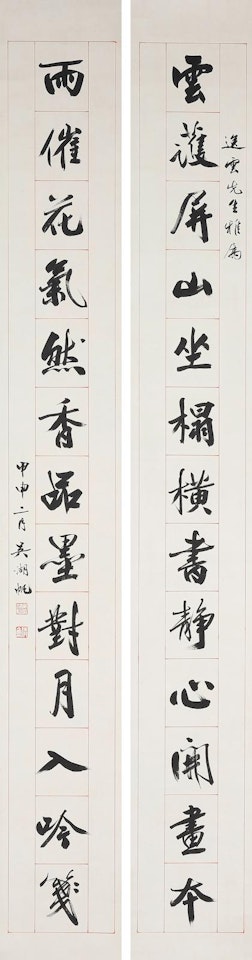 雲護屏山坐榻橫書靜心開畫本
逸雲先生雅屬
雨催花氣然香品墨對月入吟箋
甲申二月吳湖帆